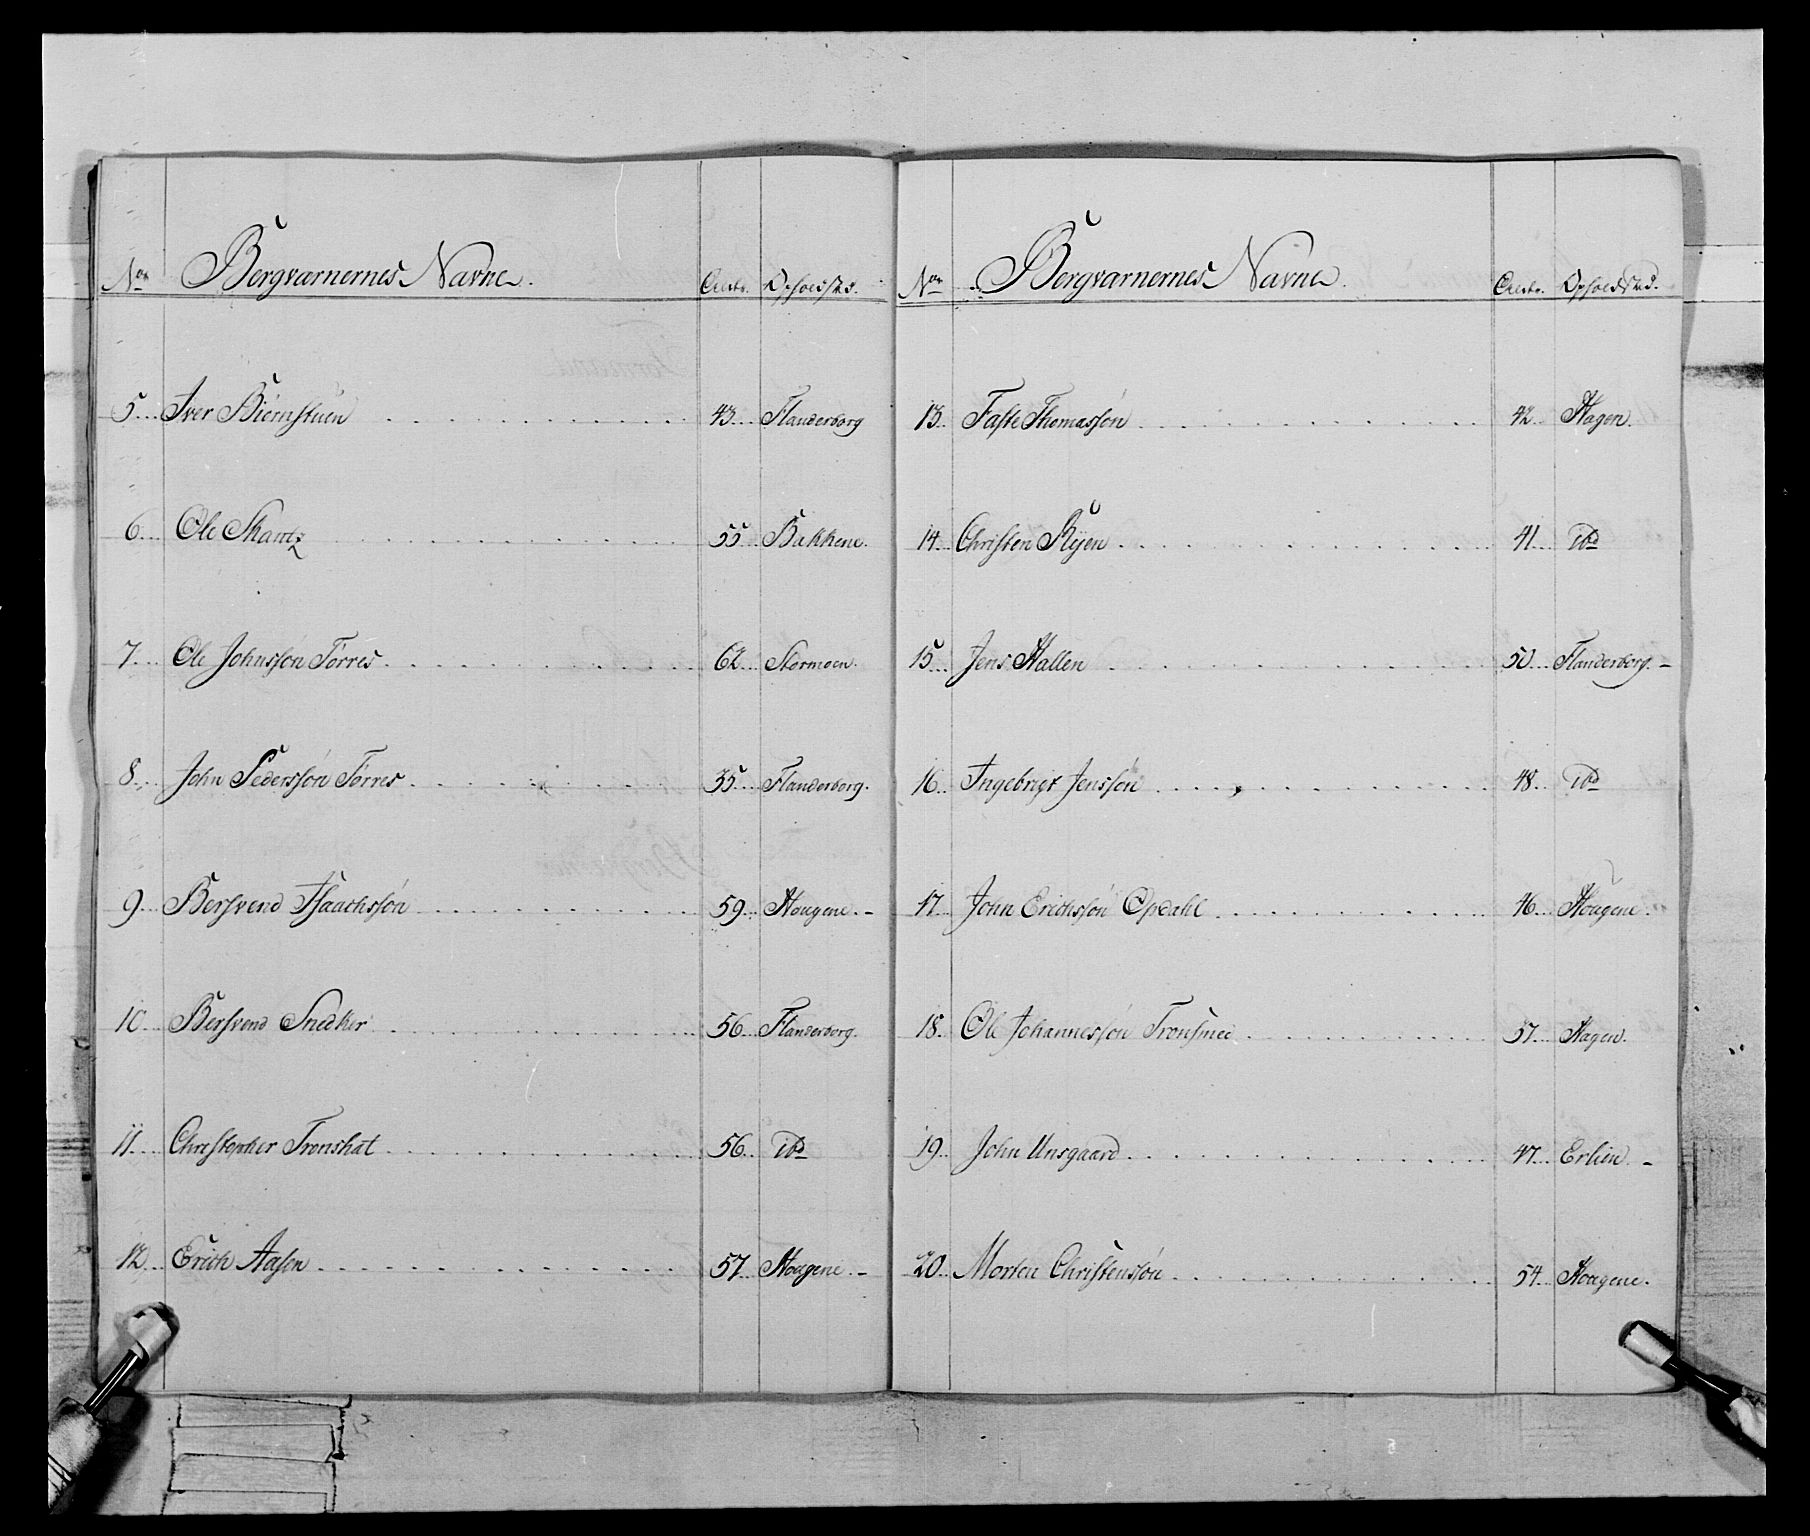 No. Bergværnernes Navne. Alder. Opholdsted.
5. Iver Biørnstuen 43. Flanderborg
6. Ole Skantz 55. Bakkene.
7. Ole Johnssøn Tørres 62. Stormoen.
8. John Pederssøn Tørres 35. Flanderborg.
9. Bersvend Isaachssøn 59. Hougene.-
10. Bersvend Snedker 56. Flanderborg.
11. Christopher Tronshat 56. ibd
12. Erich Aasen 57. Hougene.-
No. Bergværnernes Navne. Alder. Opholdsted.
13. Faste Thomassøn 42. Hagen.
14. Christen Ryen 41. ibd
15. Jens Hallen 50. Flanderborg.-
16. Ingebrigt Jenssøn 48. ibd
17. John Erichssøn Opdahl 46. Hougene.
18. Ole Johannessøn Tronsmee 57. Hagen.
19. John Unsgaard 47. Erlien.-
20. Morten Christenssøn 54. Hougene.